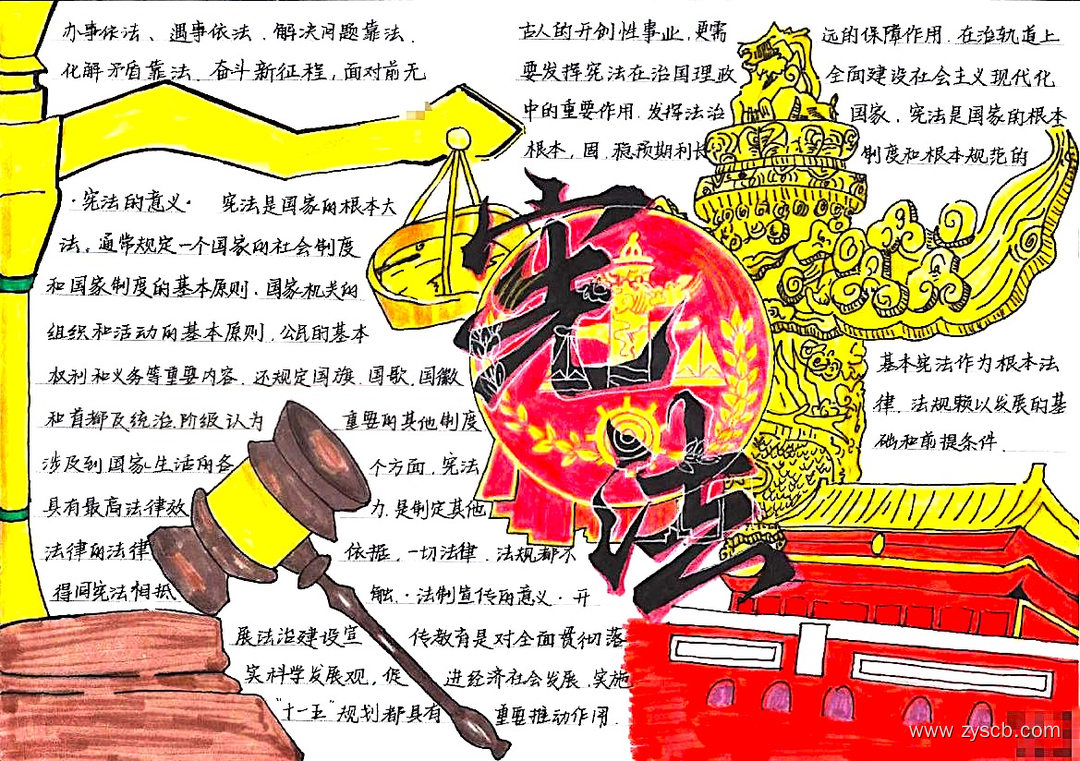 办事依法、遇事依法、解决问题靠法、
化解矛盾靠法、奋斗新征程，面对前无
古人的开创性事业，更需
要发挥宪法在治国理政
中的重要作用、发挥法治
根本，固、稳预期利长
远的保障作用、在治轨道上
全面建设社会主义现代化
国家，宪法是国家的根本
制度和根本规范的
基本宪法作为根本法
律、法规赖以发展的基
础和前提条件、
宪法
·宪法的意义· 宪法是国家的根本大
法，通常规定一个国家的社会制度
和国家制度的基本原则、国家机关的
组织和活动的基本原则、公民的基本
权利和义务等重要内容、还规定国旗、国歌、国徽
和首都及统治阶级认为 重要的其他制度
涉及到国家生活的各 个方面，宪法
具有最高法律放 力、是制定其他
法律的法律 依据，一切法律、法规都不
得同宪法相抵 触、·法制宣传的意义·开
展法治建设宣 传教育是对全面贯彻落
实科学发展观，促 进经济社会发展、实施
“十一五”规划都具有 重要推动作用.
www.zyscb.com